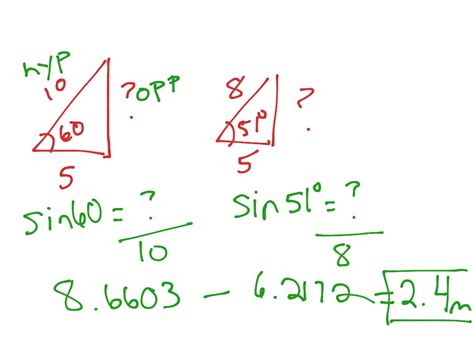 hyp
10
? opp
60
5
8
?
51°
5
sin60 = ?/10
sin51° = ?/8
8.6603 - 6.2172 = 2.4m